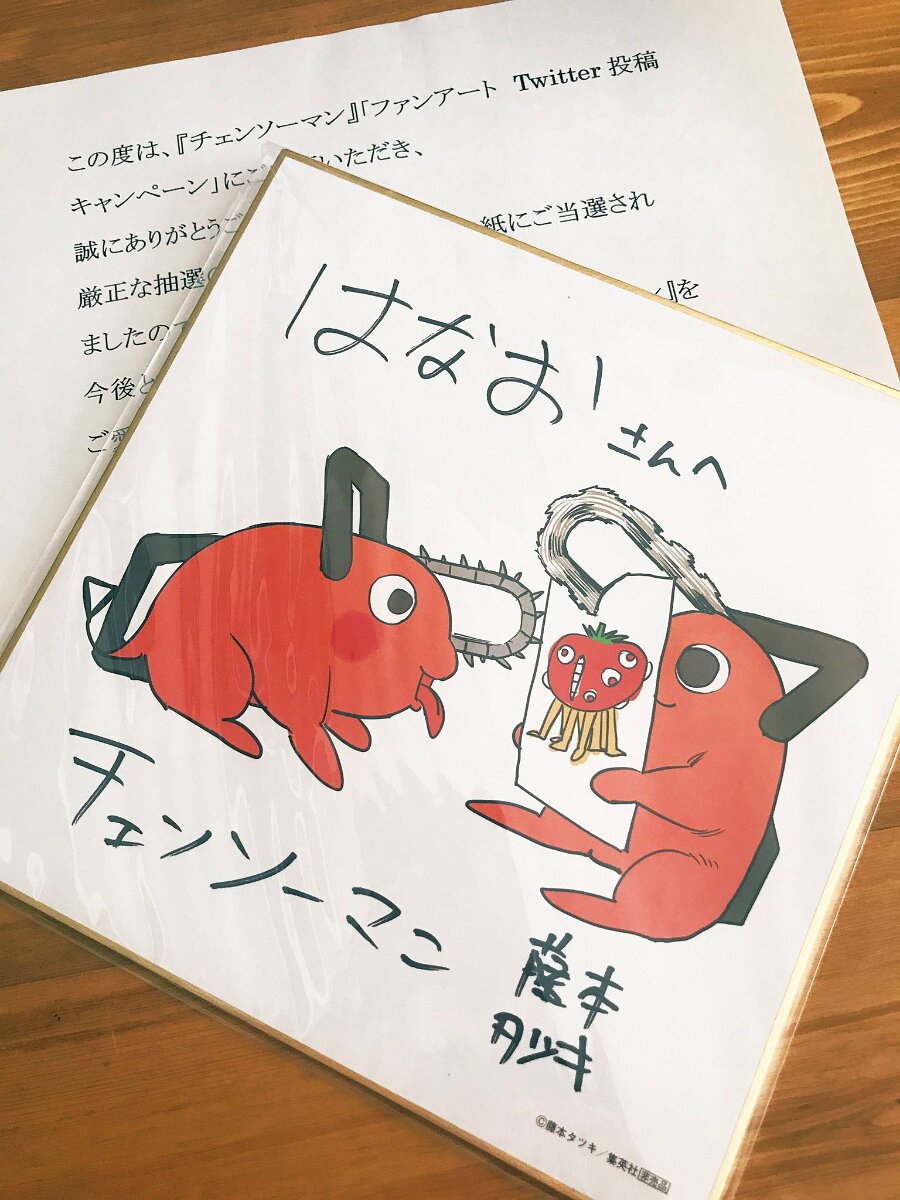 この度は、『チェンソーマン』「ファンアート Twitter 投稿
キャンペーン」にご いただき、
誠にありがとうご
厳正な抽選 紙にご当選され
ましたので 』を
今後と
ご愛
はなおーさんへ
チェンソーマン
藤本
タツキ
©藤本タツキ/集英社 非売品